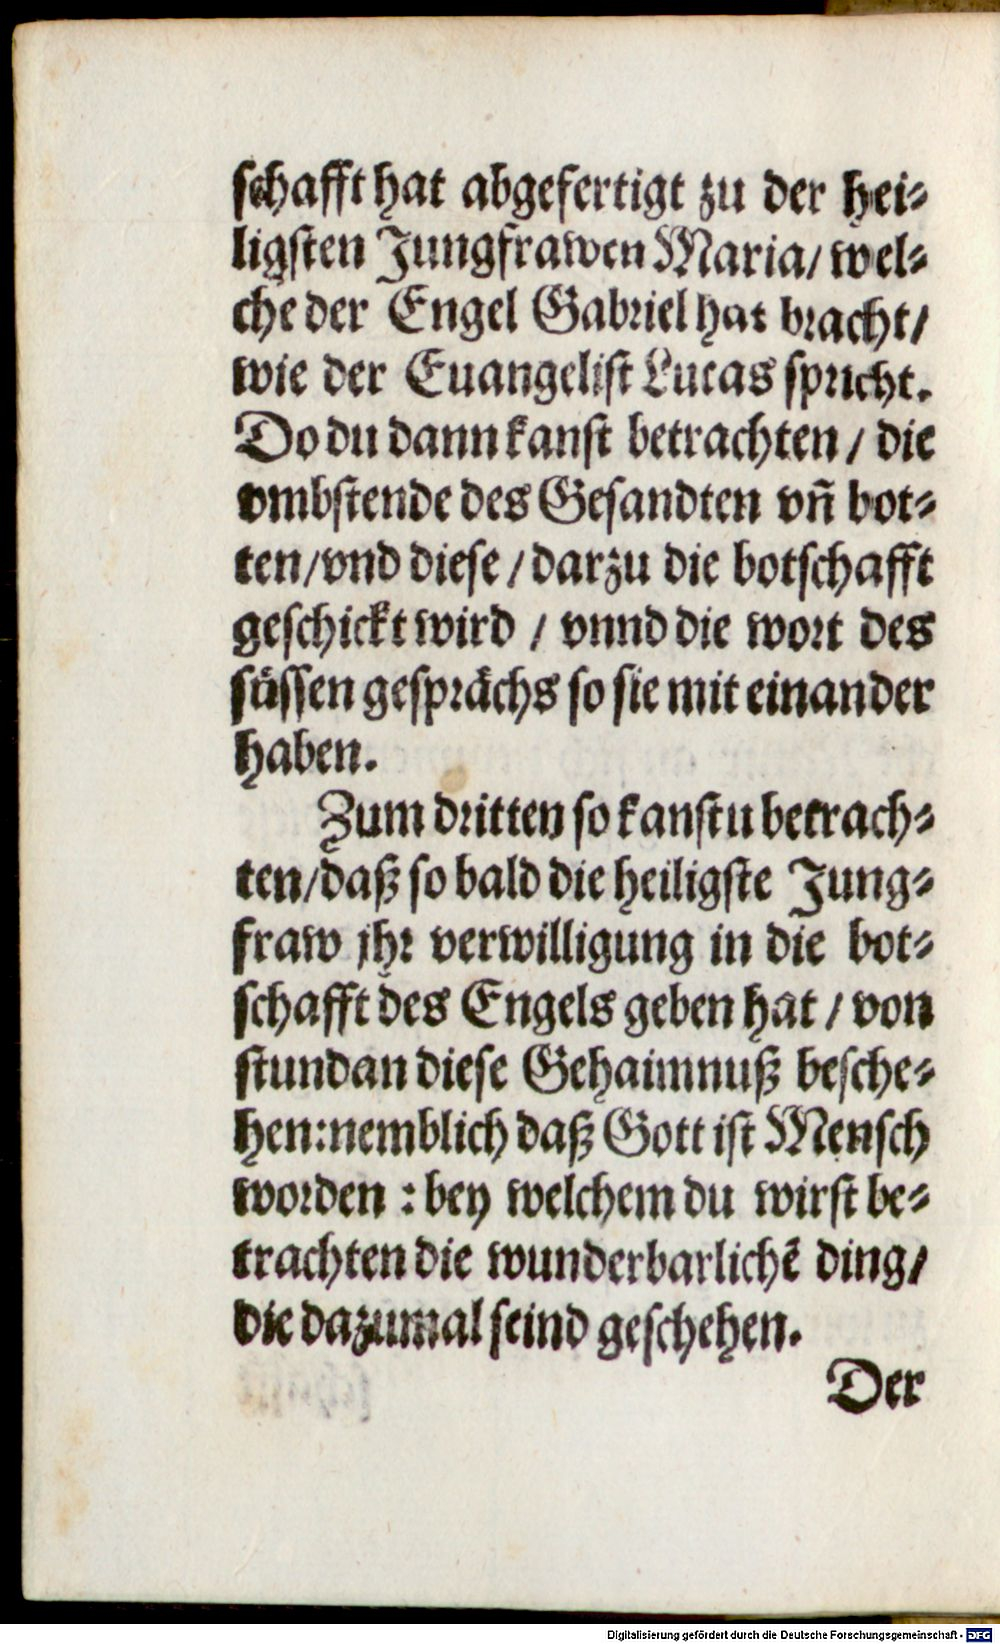 schafft hat abgefertigt zu der hei⸗
ligsten Jungfrawen Maria/ wel⸗
che der Engel Gabriel hat bracht/
wie der Euangelist Lucas spricht.
Do du dann kanst betrachten / die
vmbstende des Gesandten vñ bot⸗
ten/vnd diese / darzu die botschafft
geschickt wird / vnnd die wort des
süssen gesprächs so sie mit einander
haben.
Zum dritten so kanstu betrach⸗
ten/daß so bald die heiligste Jung⸗
fraw jhr verwilligung in die bot⸗
schafft des Engels geben hat / von
stundan diese Gehaimnuß besche⸗
hen:nemblich daß Gott ist Mensch
worden : bey welchem du wirst be⸗
trachten die wunderbarlichẽ ding/
die dazumal seind geschehen.
Der
Digitalisierung gefördert durch die Deutsche Forschungsgemeinschaft - DFG